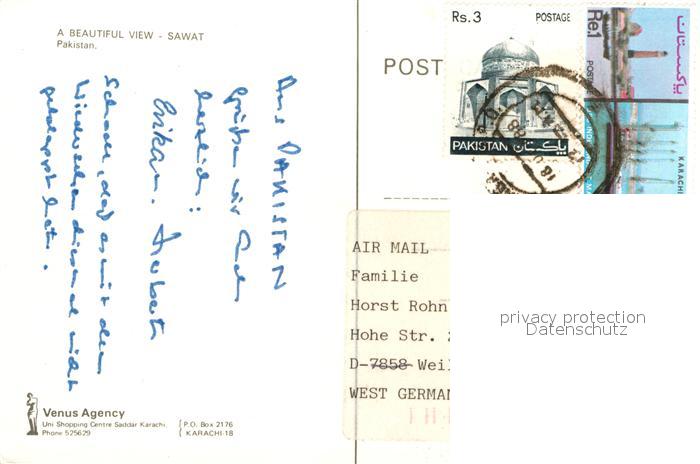 A BEAUTIFUL VIEW - SAWAT
Pakistan.
Aus PAKISTAN
grüßen wir Euch
herzlich:
Erika u. Hubert
Schade, daß es mit dem
Wiedersehen diesmal nicht
geklappt hat.
Venus Agency
Uni Shopping Centre Saddar Karachi.
Phone 525629
P.O. Box 2176
KARACHI-18
POST
Rs.3 POSTAGE
PAKISTAN پاکستان
Re.1
پاکستان
KARACHI
AIR MAIL
Familie
Horst Rohn
Hohe Str.
D-7858 Weil
WEST GERMAN
privacy protection
Datenschutz